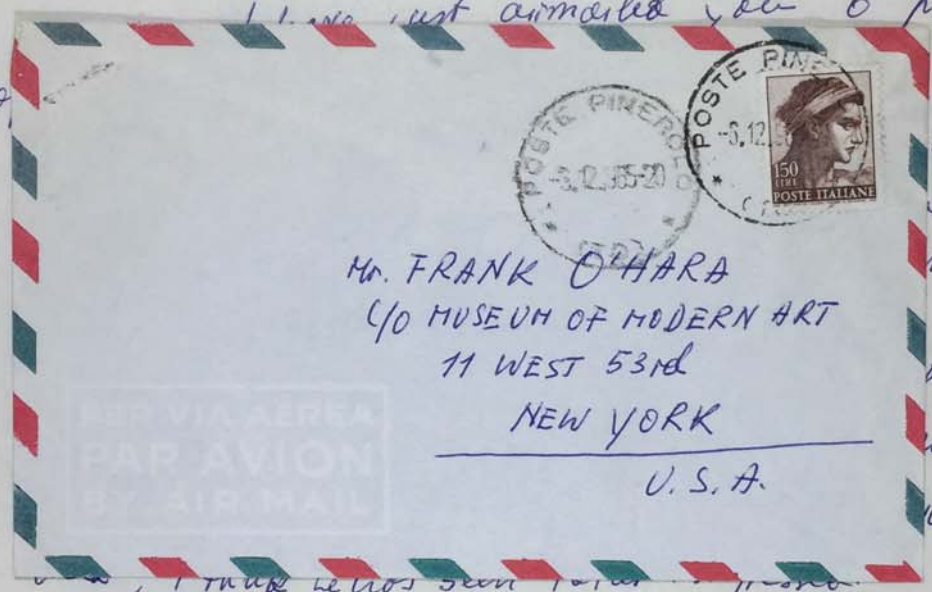 I have just airmailed you
POSTE PINEROLO
POSTE PINE
150
LIRE
POSTE ITALIANE
Mr. FRANK O'HARA
C/O MUSEUM OF MODERN ART
11 WEST 53rd
NEW YORK
U.S.A.
PER VIA AEREA
PAR AVION
BY AIR MAIL